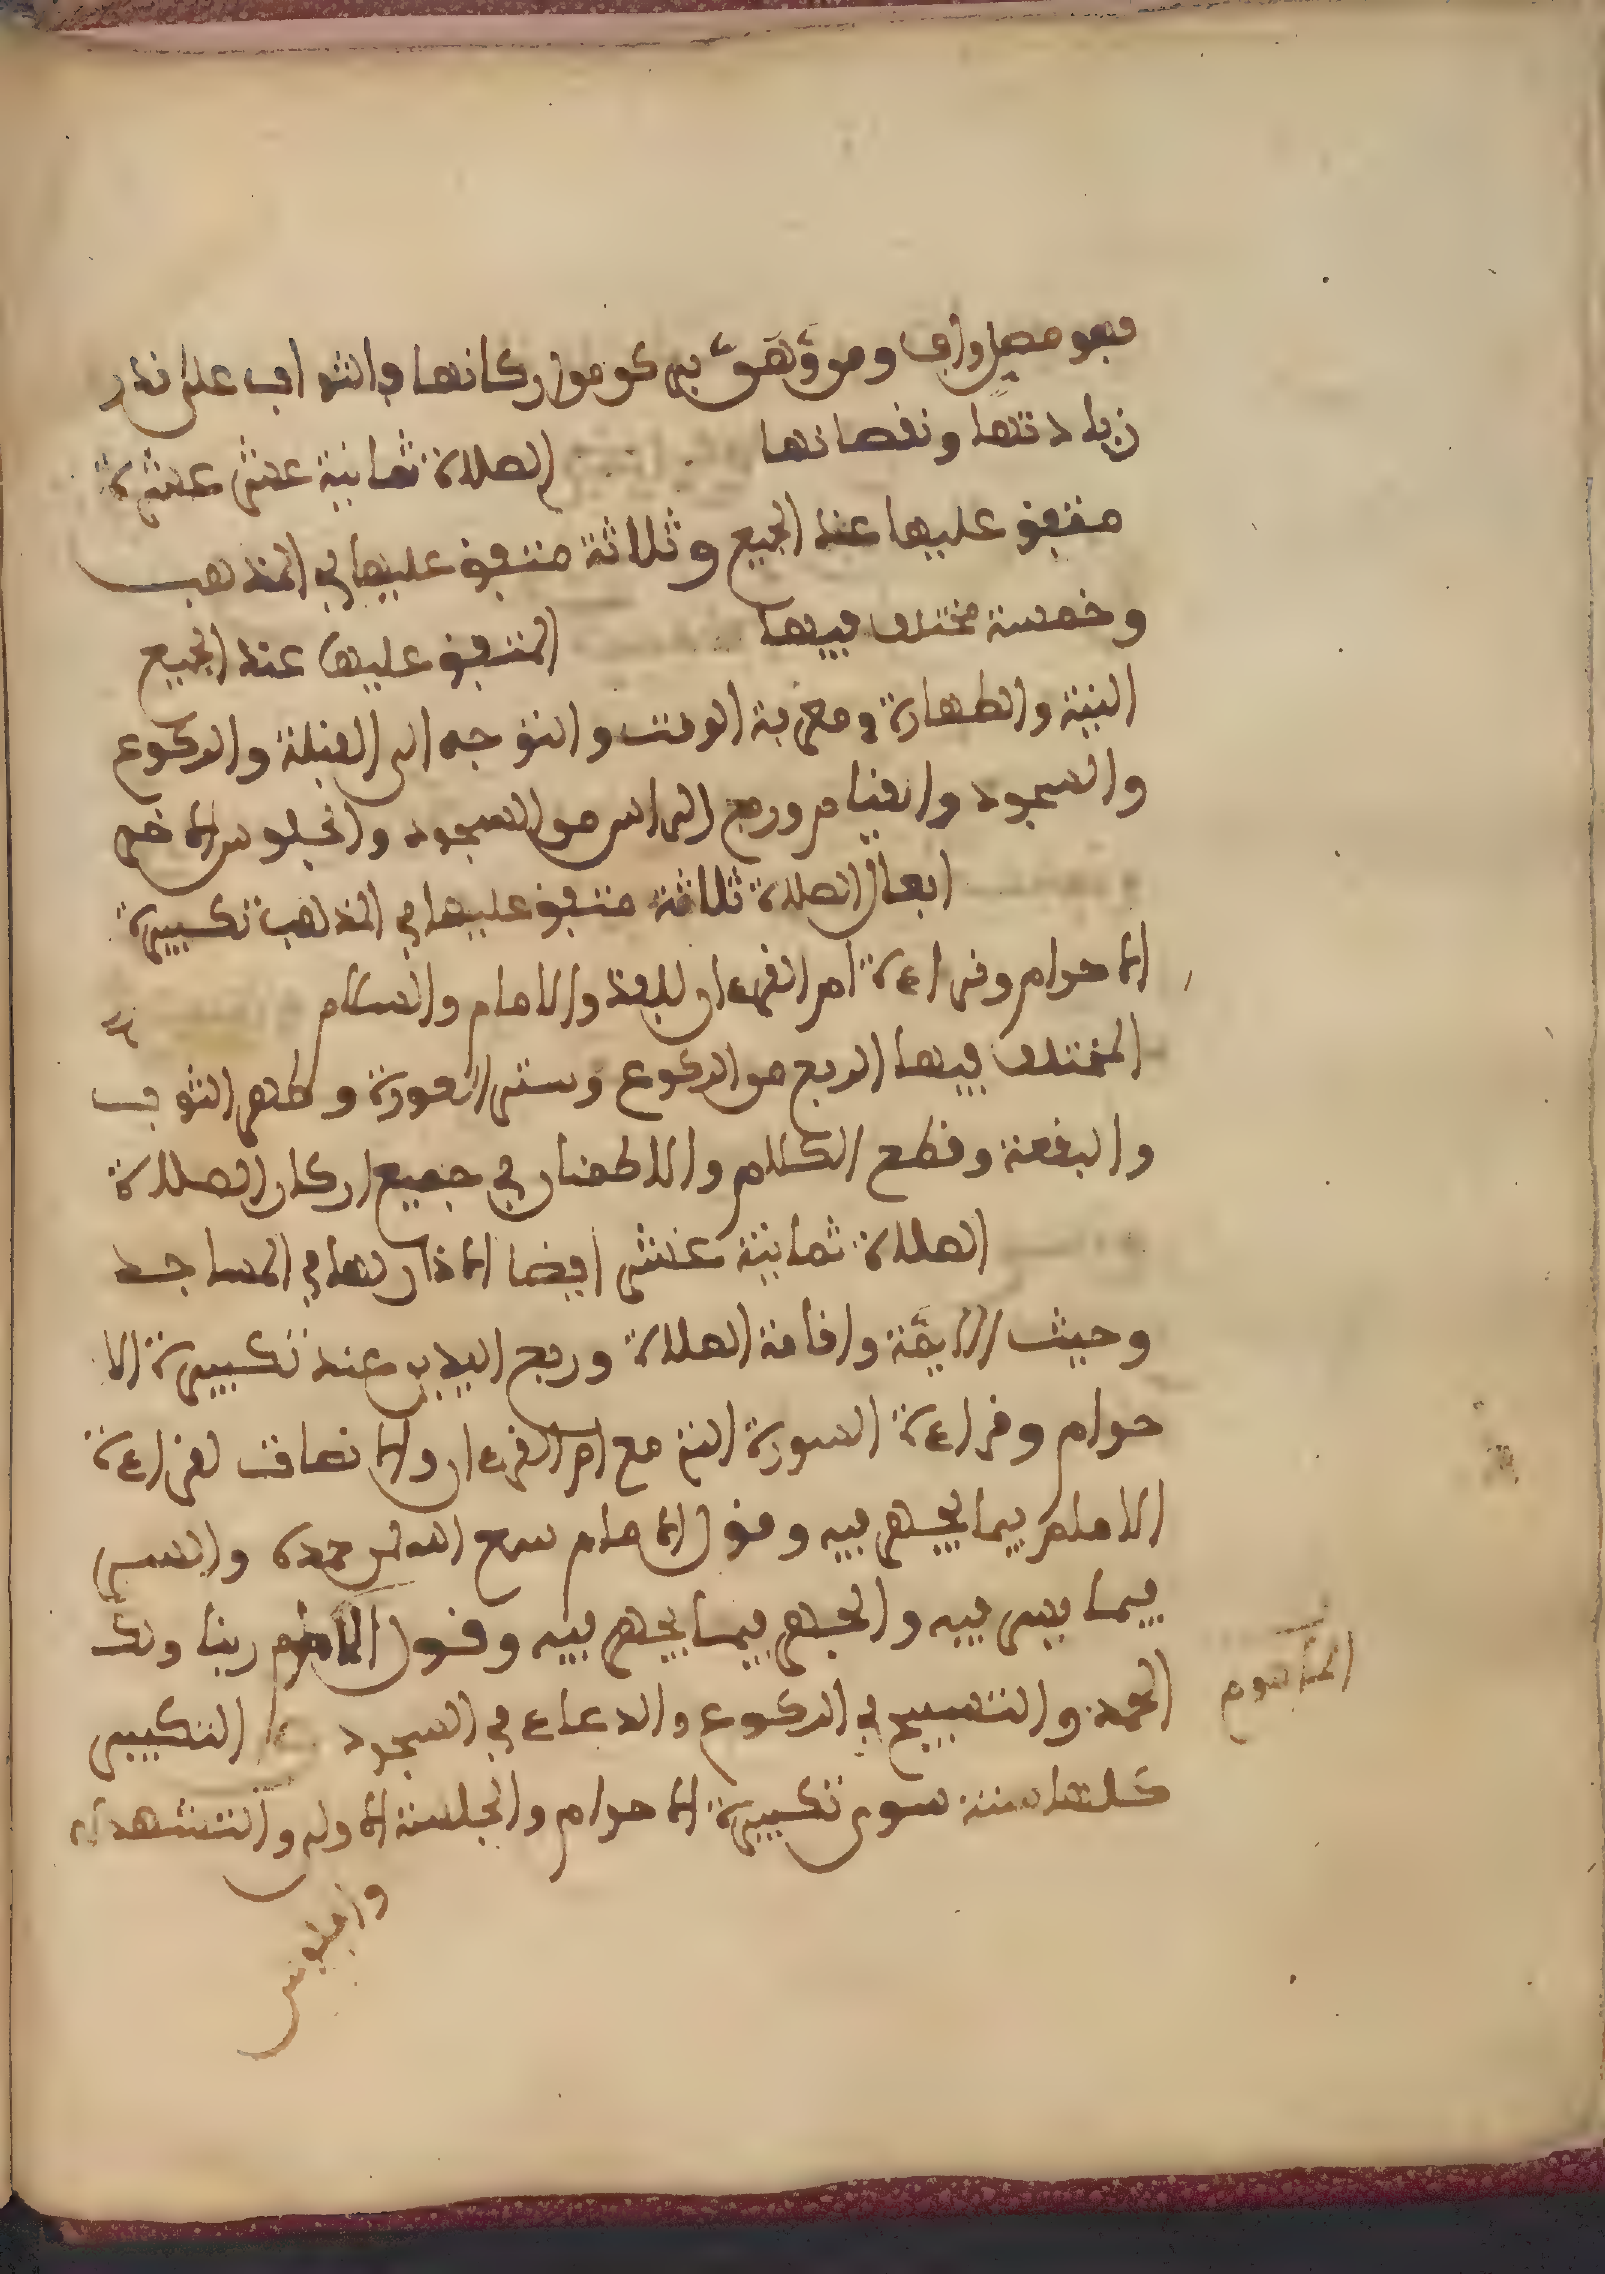 فهو مصل واف ومن نقص من ركوعها من اركانها والثواب على قدر
زيادتها ونقصانها الصلاة ثمانية عشر عشرة
متفق عليها عند الجميع وثلاثة متفق عليها في المذهب
وخمسة مختلف فيها المتفق عليها عند الجميع
النية والطهارة ومعرفة الوقت والتوجه الى القبلة والركوع
والسجود والقيام ورفع الراس من السجود والجلوس الاخير
افعال الصلاة ثلاثة متفق عليها في المذهب تكبيرة
الاحرام وقراءة ام القرءان للفذ والامام والسلام
المختلف فيها الرفع من الركوع وستر العورة وطهر الثوب
والبقعة وقطع الكلام والاطمنان في جميع اركان الصلاة
الصلاة ثمانية عشر ايضا الاذان لها في المساجد
وحيث الايمة واقامة الصلاة ورفع اليدين عند تكبيرة الا
حرام وقراءة السورة التي مع ام القرءان والانصات لقراءة
الامام فيما يجهر فيه وقول الامام سمع الله لمن حمده والسر
فيما يسر فيه والجهر فيما يجهر فيه وقول الامام ربنا ولك
الماموم
الحمد والتسبيح في الركوع والدعاء في السجود التكبير
كلها سنة سوى تكبيرة الاحرام والجلسة الاولى والتشهد
والجلوس